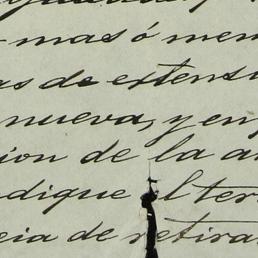 mas ó men
as de extensi
nueva, y en
ion de la a
dique el ter
cia de retira